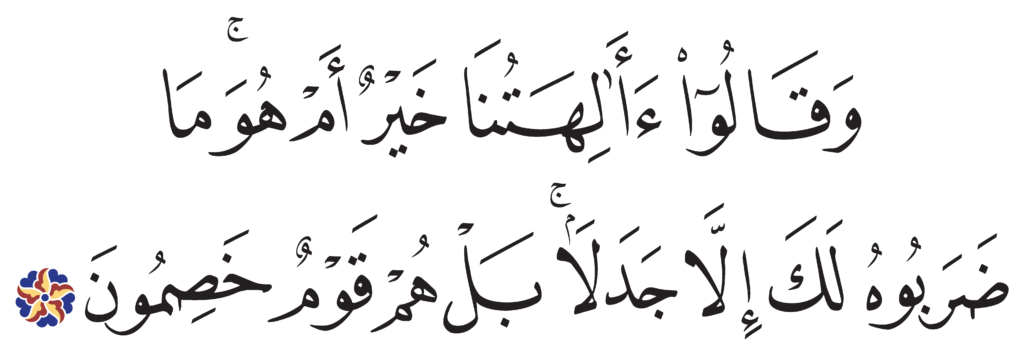 وَقَالُوٓا۟ ءَأَٰلِهَتُنَا خَيْرٌ أَمْ هُوَ ۚ مَا
ضَرَبُوهُ لَكَ إِلَّا جَدَلًۢا ۚ بَلْ هُمْ قَوْمٌ خَصِمُونَ